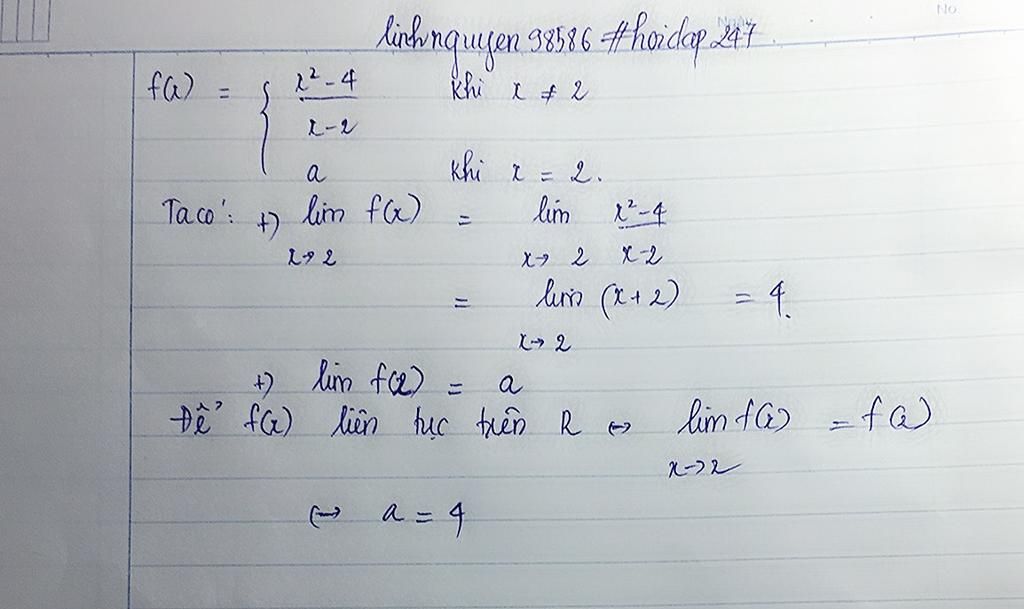 No
Ngày
linhnguyen98586 #hoidap247.
f(x) = { x²-4 / x-2 khi x ≠ 2
a khi x = 2.
Ta có: +) lim x→2 f(x) = lim x→2 x²-4 / x-2
= lim x→2 (x+2) = 4.
+) lim f(2) = a
Để f(x) liên tục trên R ⇔ lim x→2 f(x) = f(2)
⇔ a = 4